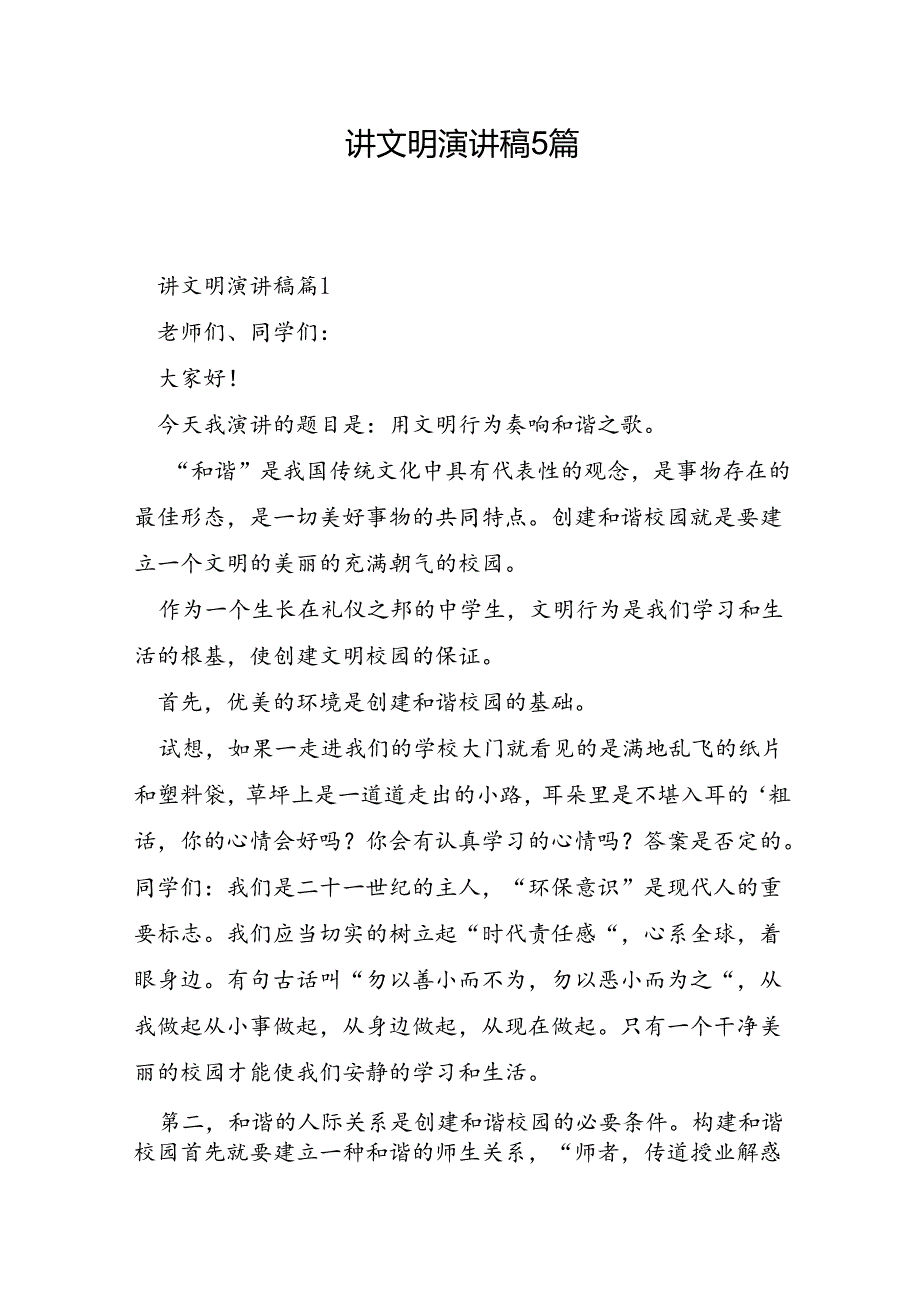 讲文明演讲稿5篇
讲文明演讲稿篇1
老师们、同学们：
大家好！
今天我演讲的题目是：用文明行为奏响和谐之歌。
“和谐”是我国传统文化中具有代表性的观念，是事物存在的
最佳形态，是一切美好事物的共同特点。创建和谐校园就是要建
立一个文明的美丽的充满朝气的校园。
作为一个生长在礼仪之邦的中学生，文明行为是我们学习和生
活的根基，使创建文明校园的保证。
首先，优美的环境是创建和谐校园的基础。
试想，如果一走进我们的学校大门就看见的是满地乱飞的纸片
和塑料袋，草坪上是一道道走出的小路，耳朵里是不堪入耳的‘粗
话，你的心情会好吗？你会有认真学习的心情吗？答案是否定的。
同学们：我们是二十一世纪的主人，“环保意识”是现代人的重
要标志。我们应当切实的树立起“时代责任感“，心系全球，着
眼身边。有句古话叫“勿以善小而不为，勿以恶小而为之“，从
我做起从小事做起，从身边做起，从现在做起。只有一个干净美
丽的校园才能使我们安静的学习和生活。
第二，和谐的人际关系是创建和谐校园的必要条件。构建和谐
校园首先就要建立一种和谐的师生关系，“师者，传道授业解惑